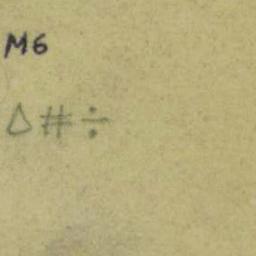 M6
△#÷